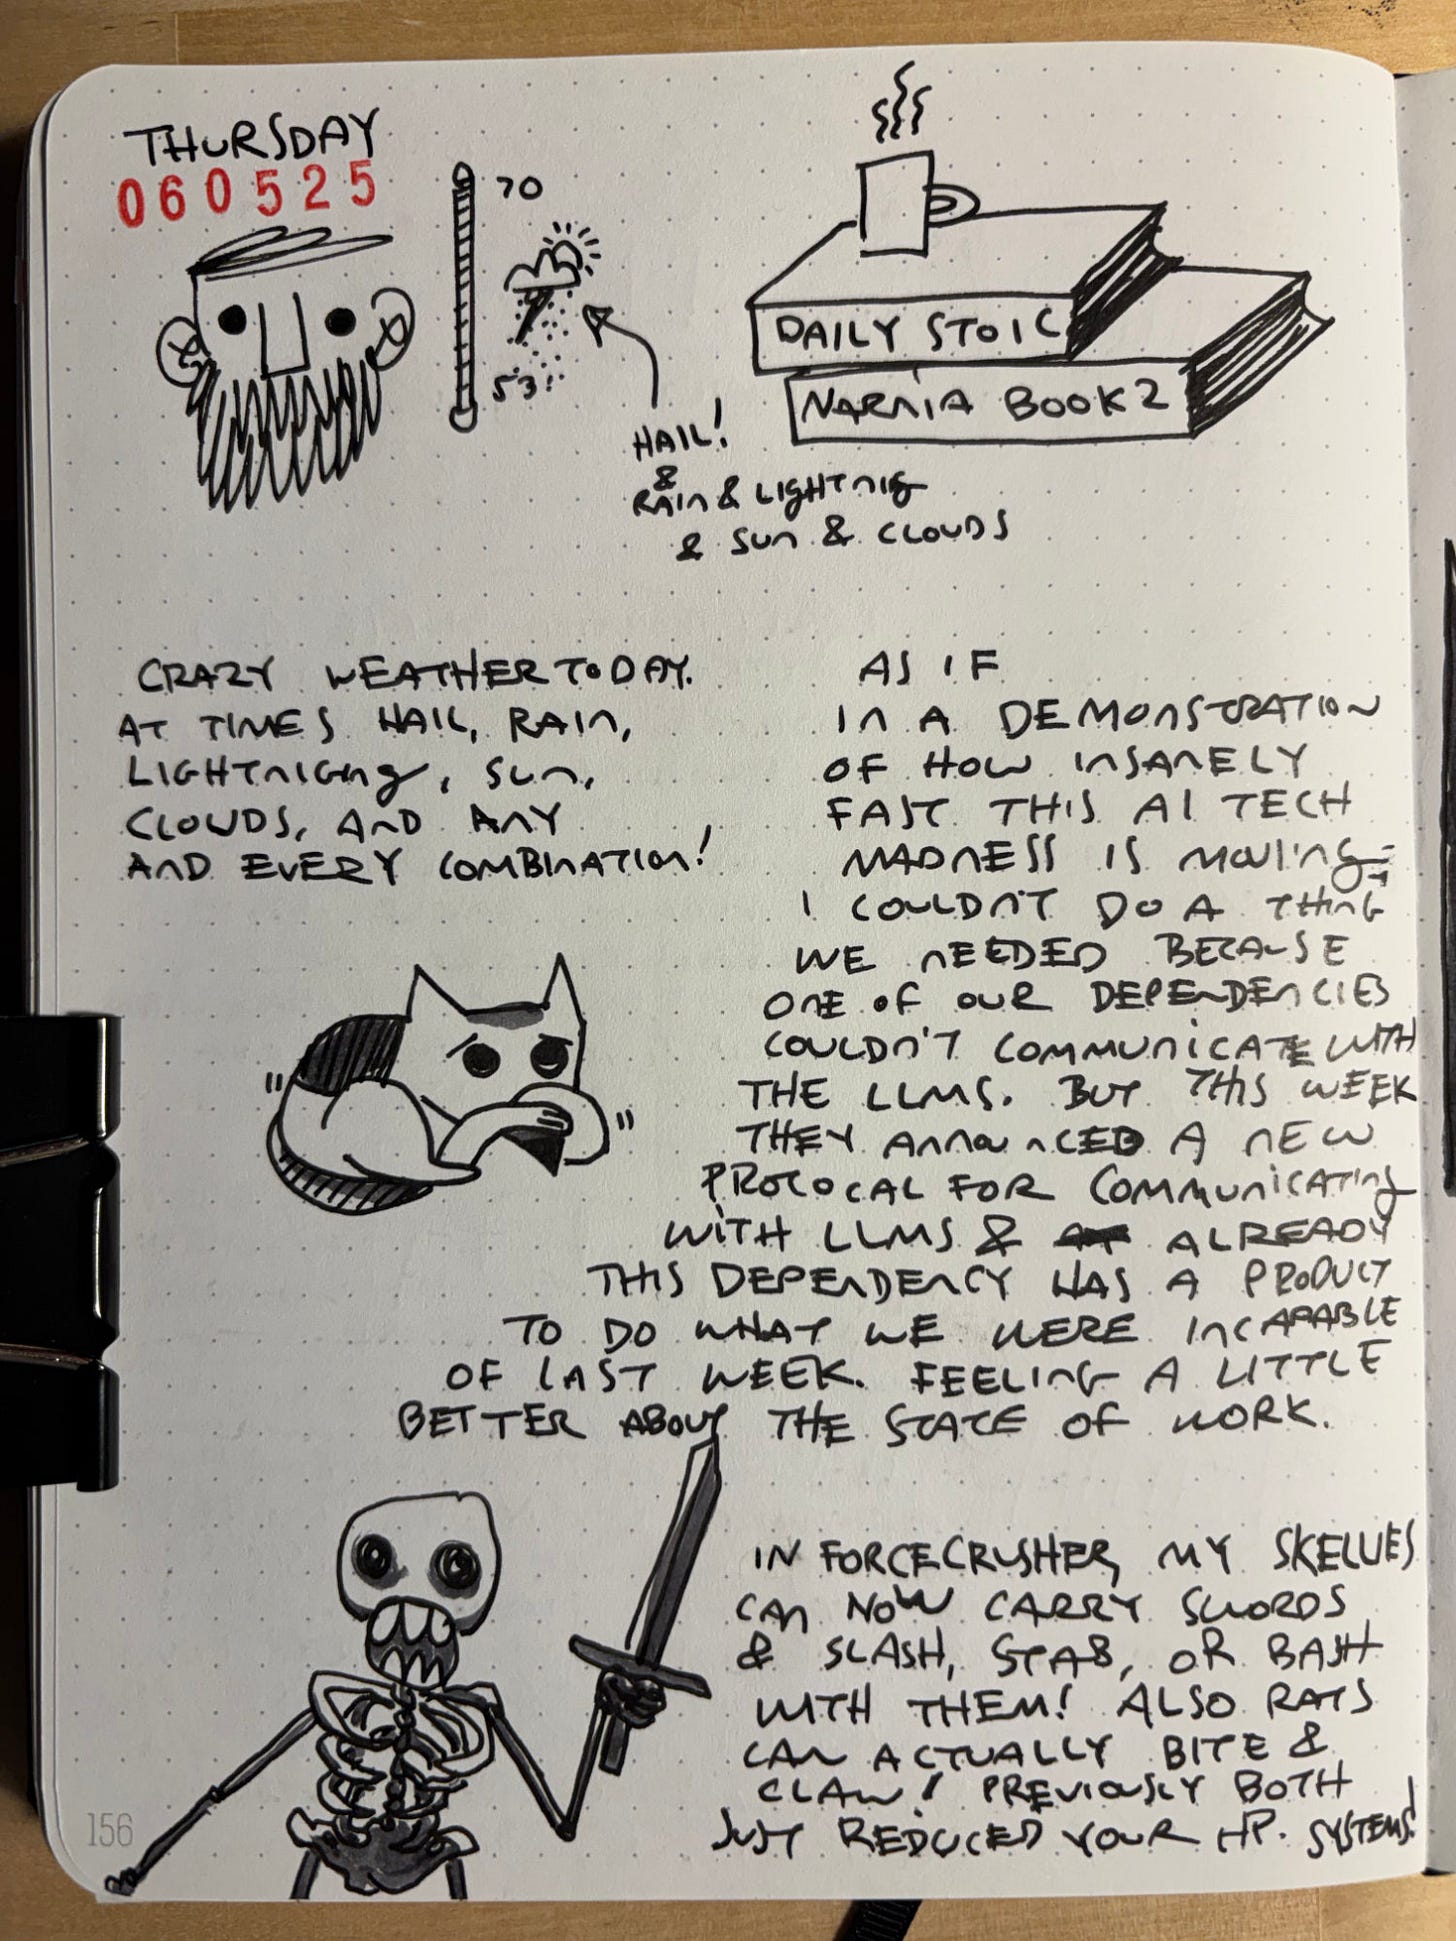 THURSDAY
060525
70
53
HAIL!
&
RAIN & LIGHTNIG
& SUN & CLOUDS
DAILY STOIC
NARNIA BOOK 2
CRAZY WEATHER TODAY.
AT TIMES HAIL, RAIN,
LIGHTNIGNG, SUN,
CLOUDS, AND ANY
AND EVERY COMBINATION!
AS IF
IN A DEMONSTRATION
OF HOW INSANELY
FAST THIS AI TECH
MADNESS IS MOVING-
I COULDN'T DO A THING
WE NEEDED BECAUSE
ONE OF OUR DEPENDENCIES
COULDN'T COMMUNICATE WITH
THE LLMS. BUT THIS WEEK
THEY ANNOUNCED A NEW
PROTOCAL FOR COMMUNICATING
WITH LLMS & ALREADY
THIS DEPENDENCY HAS A PRODUCT
TO DO WHAT WE WERE INCAPABLE
OF LAST WEEK. FEELING A LITTLE
BETTER ABOUT THE STATE OF WORK.
IN FORCECRUSHER, MY SKELLIES
CAN NOW CARRY SWORDS
& SLASH, STAB, OR BASH
WITH THEM! ALSO RATS
CAN ACTUALLY BITE &
CLAW! PREVIOUSLY BOTH
JUST REDUCED YOUR HP. SYSTEMS!
156